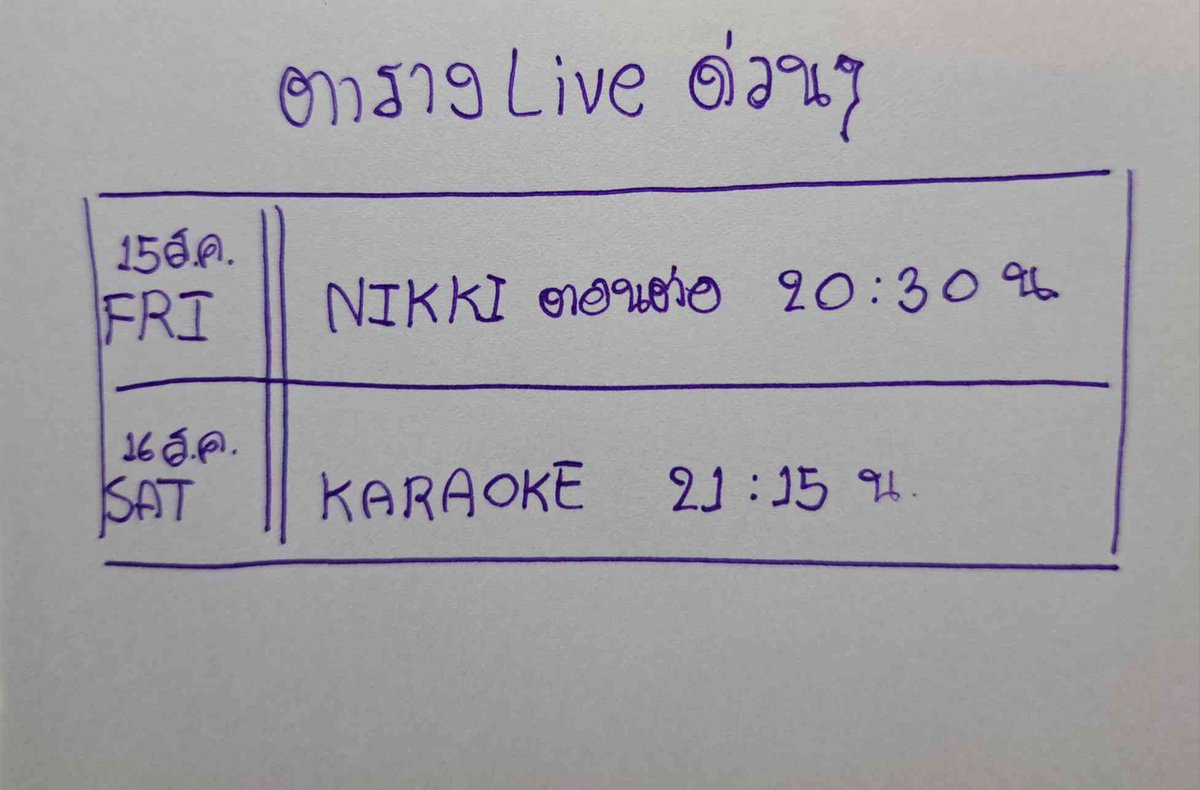 ตาราง Live ด่วนๆ
15 ส.ค.
FRI
NIKKI ตอน 20:30 น
16 ส.ค.
SAT
KARAOKE 21:15 น.